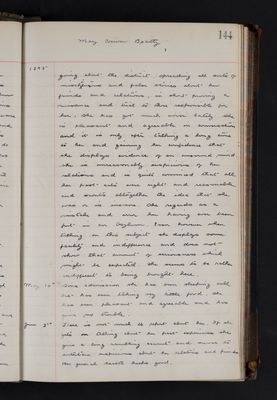 May Louisa Beatty
144
1895
going about the district spreading all sorts of
and false stories about her
friends and relations, in short proving a
nuisance and trial to those responsible for
her. She has got much worse lately. She
is pleasant and agreeable in conversation
and it is only after talking a long time
to her and gaining her confidence that
she displays evidence of an unsound mind.
She is unreasonably suspicious of her
relations and is quite convinced that all
her past acts were right and reasonable
and scouts altogether the idea that she
was or is insane. She regards as a
mistake and error her having ever been
put in an Asylum. Even however when
talking on this subject she displays some
and indifference and does not
show that amount of seriousness which
might be expected. She seems to be rather
indifferent to being brought here.
May 16th Since admission she has been sleeping well
She has been taking very little food. She
has been pleasant and agreeable and has
given no trouble.
June 3rd There is not much to report about her. If she
gets on talking about her past experiences she
gives a long rambling account and makes
accusations against her relations and friends
general health keeps good.